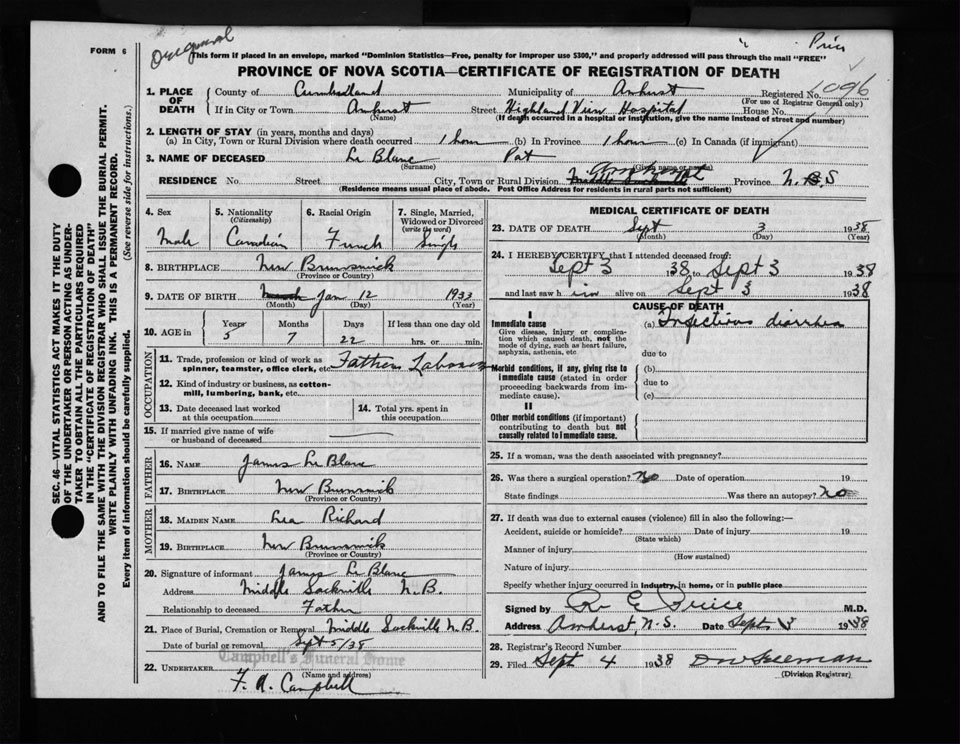 Original
FORM 6
This form if placed in an envelope, marked "Dominion Statistics—Free, penalty for improper use $300," and properly addressed will pass through the mail "FREE"
PROVINCE OF NOVA SCOTIA—CERTIFICATE OF REGISTRATION OF DEATH
1. PLACE OF DEATH
County of Cumberland Municipality of Amherst Registered No. 1096
(For use of Registrar General only)
If in City or Town Amherst Street Highland View Hospital House No.
(Name) (If death occurred in a hospital or institution, give the name instead of street and number)
2. LENGTH OF STAY (in years, months and days)
(a) In City, Town or Rural Division where death occurred 1 hour (b) In Province 1 hour (c) In Canada (if immigrant)
3. NAME OF DECEASED Le Blanc Pat
(Surname) (Given name or names)
RESIDENCE No. Street City, Town or Rural Division Province N.S
(Residence means usual place of abode. Post Office Address for residents in rural parts not sufficient)
4. Sex
Male
5. Nationality
(Citizenship)
Canadian
6. Racial Origin
French
7. Single, Married, Widowed or Divorced
(write the word)
Single
8. BIRTHPLACE New Brunswick
(Province or Country)
9. DATE OF BIRTH Jan 12 1933
(Month) (Day) (Year)
10. AGE in Years Months Days If less than one day old
5 7 22 hrs. or min.
OCCUPATION
11. Trade, profession or kind of work as spinner, teamster, office clerk, etc. Father Laborer
12. Kind of industry or business, as cotton-mill, lumbering, bank, etc.
13. Date deceased last worked at this occupation
14. Total yrs. spent in this occupation
15. If married give name of wife or husband of deceased
FATHER
16. NAME James Le Blanc
17. BIRTHPLACE New Brunswick
(Province or Country)
MOTHER
18. MAIDEN NAME Lea Richard
19. BIRTHPLACE New Brunswick
(Province or Country)
20. Signature of informant James Le Blanc
Address Middle Sackville N.B.
Relationship to deceased Father
21. Place of Burial, Cremation or Removal Middle Sackville N.B.
Date of burial or removal Sept 5/38
Campbell's Funeral Home
22. UNDERTAKER
(Name and address)
F. A. Campbell
MEDICAL CERTIFICATE OF DEATH
23. DATE OF DEATH Sept 3 1938
(Month) (Day) (Year)
24. I HEREBY CERTIFY that I attended deceased from:
Sept 3 1938 to Sept 3 1938
and last saw him alive on Sept 3 1938
CAUSE OF DEATH
I
Immediate cause
Give disease, injury or complication which caused death, not the mode of dying, such as heart failure, asphyxia, asthenia, etc
(a) Infectious diarrhea
due to
Morbid conditions, if any, giving rise to immediate cause (stated in order proceeding backwards from immediate cause).
(b)
due to
(c)
II
Other morbid conditions (if important) contributing to death but not causally related to immediate cause.
25. If a woman, was the death associated with pregnancy?
26. Was there a surgical operation? No Date of operation 19
State findings Was there an autopsy? No
27. If death was due to external causes (violence) fill in also the following:—
Accident, suicide or homicide? Date of injury 19
(State which)
Manner of injury
(How sustained)
Nature of injury
Specify whether injury occurred in industry, in home, or in public place
Signed by M.D.
Address Amherst, N.S. Date Sept 3 1938
28. Registrar's Record Number
29. Filed Sept 4 1938
(Division Registrar)
SEC. 46—VITAL STATISTICS ACT MAKES IT THE DUTY
OF THE UNDERTAKER OR PERSON ACTING AS UNDER-
TAKER TO OBTAIN ALL THE PARTICULARS REQUIRED
IN THE "CERTIFICATE OF REGISTRATION OF DEATH"
AND TO FILE THE SAME WITH THE DIVISION REGISTRAR WHO SHALL ISSUE THE BURIAL PERMIT.
WRITE PLAINLY WITH UNFADING INK. THIS IS A PERMANENT RECORD.
Every item of information should be carefully supplied. (See reverse side for instructions.)